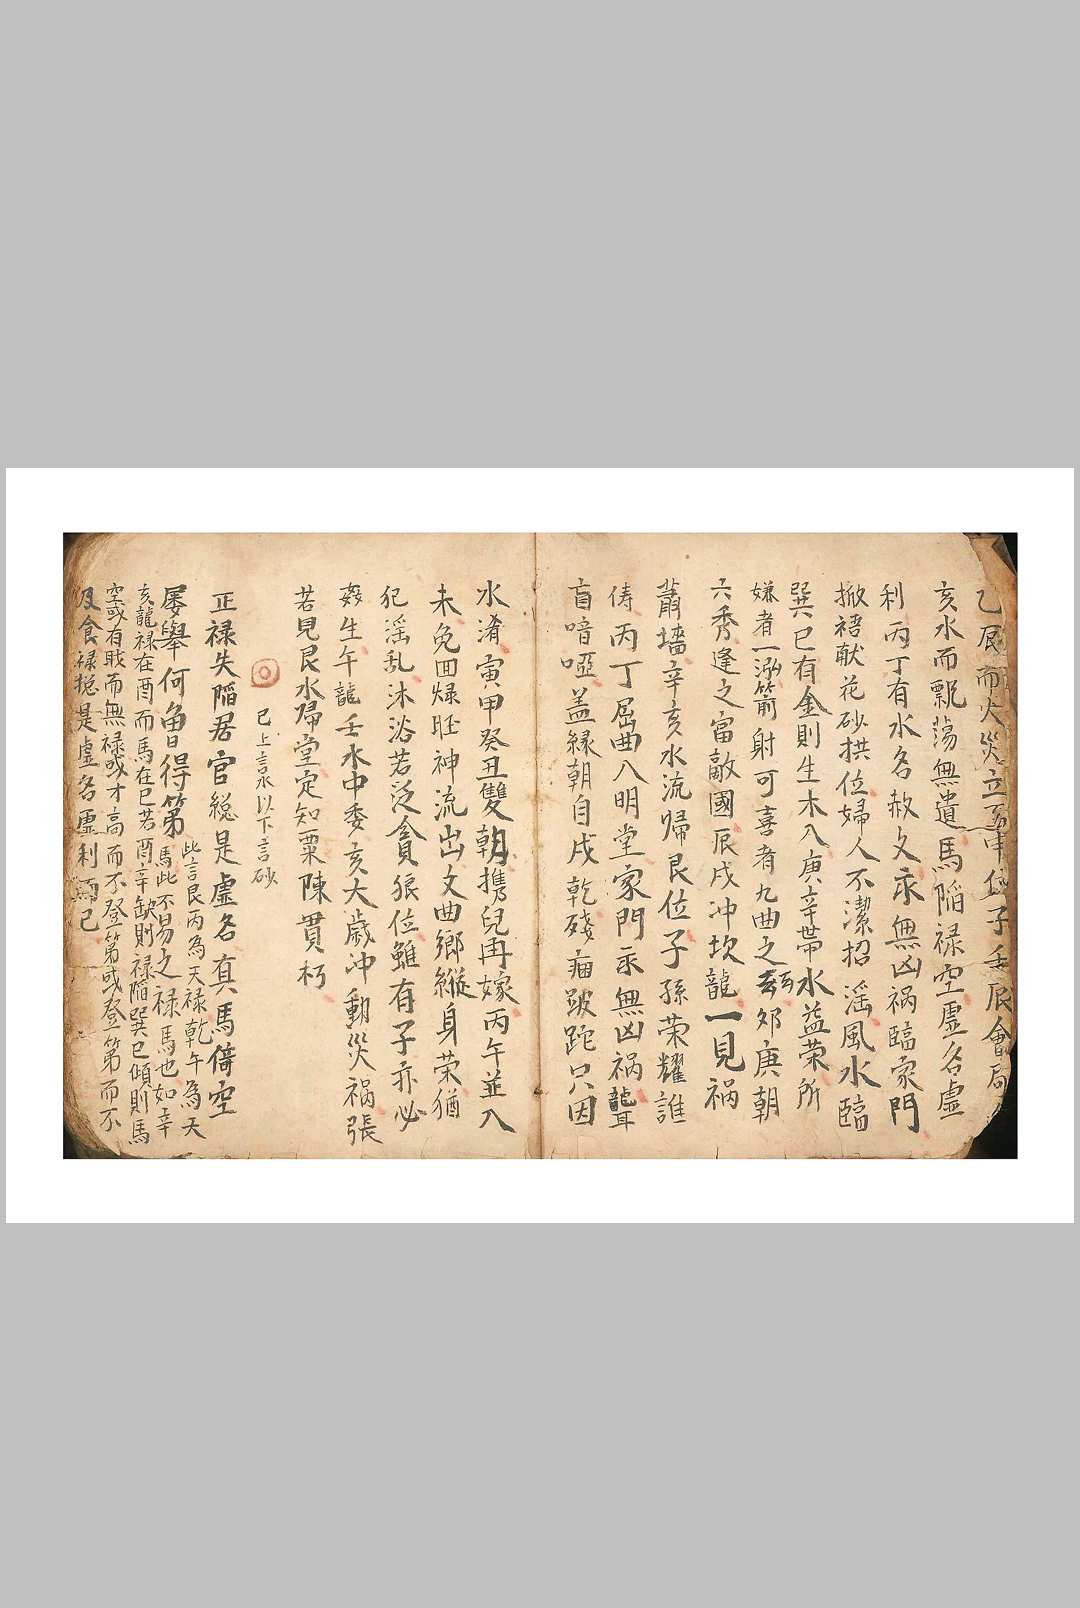 乙辰而火災立至申住子壬辰會局
亥水而飄蕩無遺馬陷禄空虛名虛
利丙丁有水名赦文永無凶祸臨家門
掀裙献花砂拱位婦人不潔招滛風水臨
巽巳有金則生木入庚辛帶水益荣所
嫌者一泓箭射可喜者九曲之 郊庚朝
六秀逢之富敵國辰戌冲坎龍一見祸
蕭墻辛亥水流歸艮位子孫荣耀誰
俦丙丁屈曲八明堂家門永無凶祸聾
盲喑啞盖緣朝自戌乾殘痼跛跎只因
水淆寅甲癸丑雙朝攜兒再嫁丙午並入
未免囬禄旺神流出文曲鄉縱身荣猶
犯滛乱沐浴若泛貪狼位雖有子亦必
姦生午龍壬水中委亥大歲冲動災祸張
若見艮水歸堂定知粟陳貫朽
已上言水以下言砂
正禄失陷居官總是虛名真馬倚空
屡舉何曾得第
此言艮丙為天禄乾午為天
馬此不易之禄馬也如辛
亥龍禄在酉而馬在巳若酉辛缺則禄陷巽巳傾則馬
空或有戝而無禄或才高而不登第或登第而不
及食禄揔是虛名虛利而已